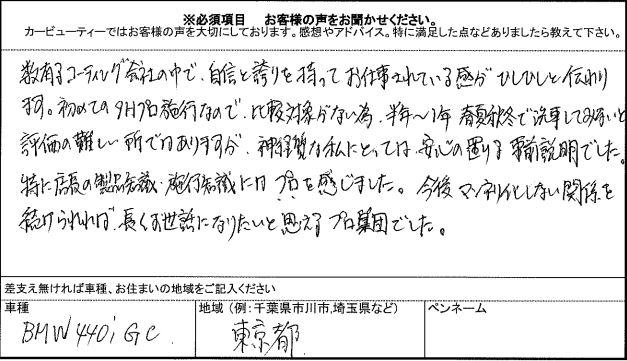 ※必須項目 お客様の声をお聞かせください。
カービューティーではお客様の声を大切にしております。感想やアドバイス。特に満足した点などありましたら教えて下さい。
数有るコーティング会社の中で、自信と誇りを持ってお仕事されている感がひしひしと伝わり
ます。初めての9Hプロ施行なので、比較対象がない為、半年～1年 春夏秋冬で洗車してみないと
評価の難しい所ではありますが、神経質な私にとっては、安心の図れる事前説明でした。
特に店長の製品知識・施行知識にはプロを感じました。今後マンネリ化しない関係を
続けられれば、長くお世話になりたいと思えるプロ集団でした。
差支え無ければ車種、お住まいの地域をご記入ください
車種
地域(例:千葉県市川市,埼玉県など)
ペンネーム
BMW440i GC
東京都